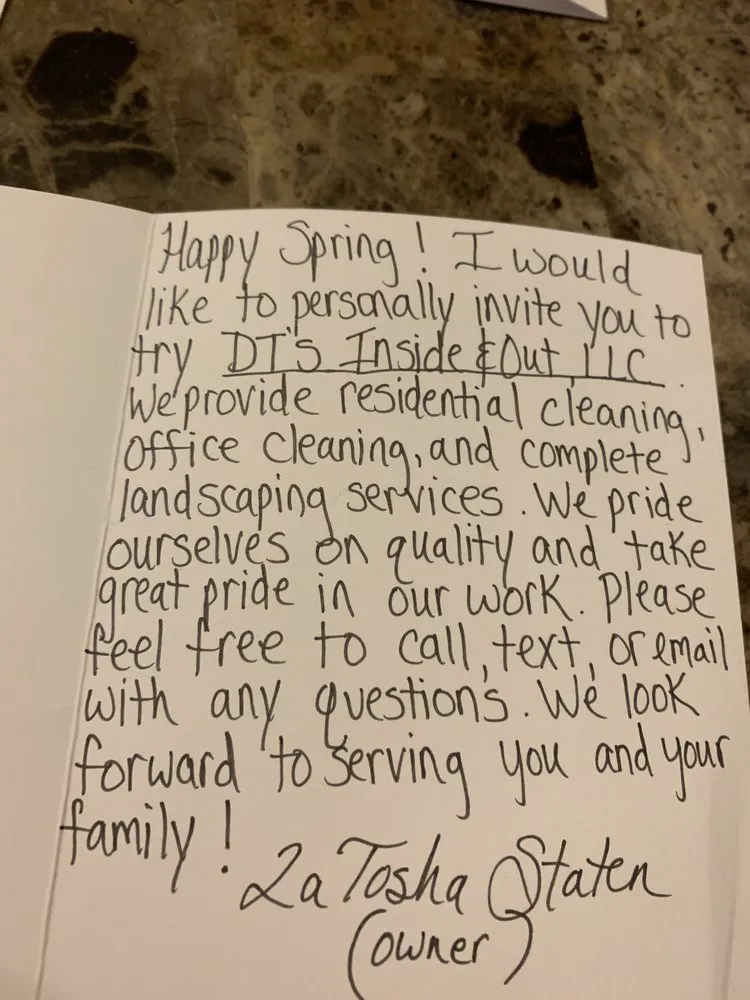 Happy Spring! I would
like to personally invite you to
try DT's Inside & Out LLC.
We provide residential cleaning,
office cleaning, and complete
landscaping services. We pride
ourselves on quality and take
great pride in our work. Please
feel free to call, text, or email
with any questions. We look
forward to serving you and your
family!
LaTosha Staten
(owner)